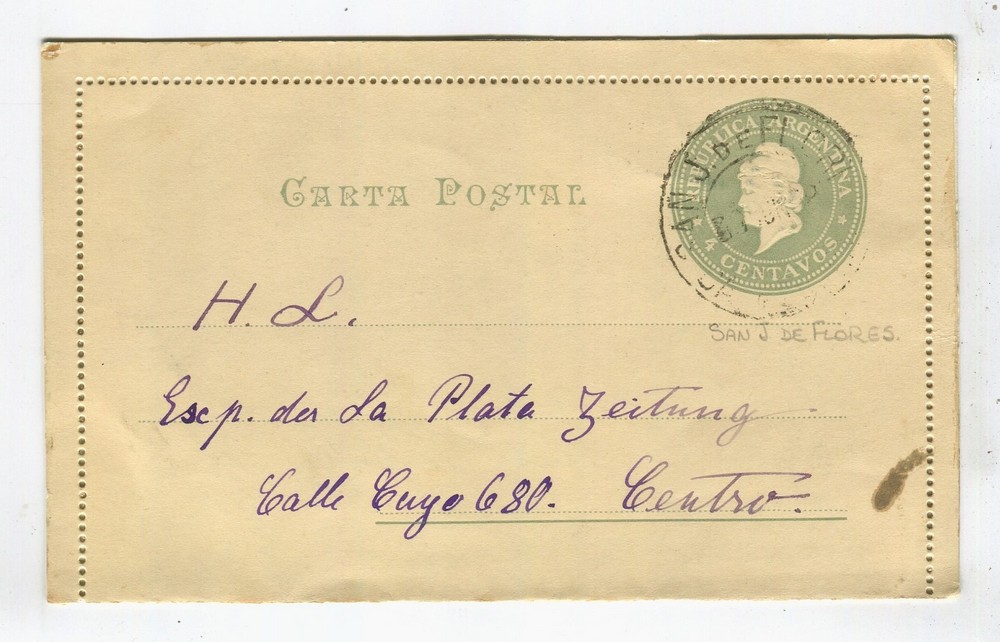 REPÚBLICA ARGENTINA
4 CENTAVOS
SAN J. DE FLORES
CARTA POSTAL
H. L.
SAN J DE FLORES.
Exp. der La Plata Zeitung
Calle Cuyo 680. Centro.